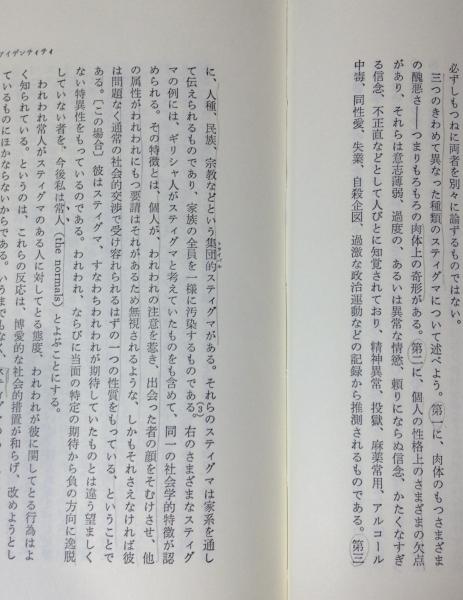 必ずしもつねに両者を別々に論ずるものではない。
三つのきわめて異なった種類のスティグマについて述べよう。第一に、肉体のもつさまざま
の醜悪さ——つまりもろもろの肉体上の奇形がある。第二に、個人の性格上のさまざまの欠点
があり、それらは意志薄弱、過度の、あるいは異常な情慾、頼りにならぬ信念、かたくなすぎ
る信念、不正直などとして人びとに知覚されており、精神異常、投獄、麻薬常用、アルコール
中毒、同性愛、失業、自殺企図、過激な政治運動などの記録から推測されるものである。第三
アイデンティティ
に、人種、民族、宗教などという集団的スティグマがある。それらのスティグマは家系を通し
て伝えられるものであり、家族の全員を一様に汚染するものである。(3)右のさまざまなスティグ
マの例には、ギリシャ人がスティグマと考えていたものをも含めて、同一の社会学的特徴が認
められる。その特徴とは、個人が、われわれの注意を惹き、出会った者の顔をそむけさせ、他
の属性がわれわれにもつ要請はそれがあるため無視されるような、しかもそれさえなければ彼
は問題なく通常の社会的交渉で受け容れられるはずの一つの性質をもっている、ということで
ある。〔この場合〕彼はスティグマ、すなわちわれわれが期待していたものとは違う望ましく
ない特異性をもっているのである。われわれ、ならびに当面の特定の期待から負の方向に逸脱
していない者を、今後私は常人(the normals)とよぶことにする。
われわれ常人がスティグマのある人に対してとる態度、われわれが彼に関してとる行為はよ
く知られている。というのは、これらの反応は、博愛的な社会的措置が和らげ、改めようとし
ているものにほかならないからである。いうまでもなく、